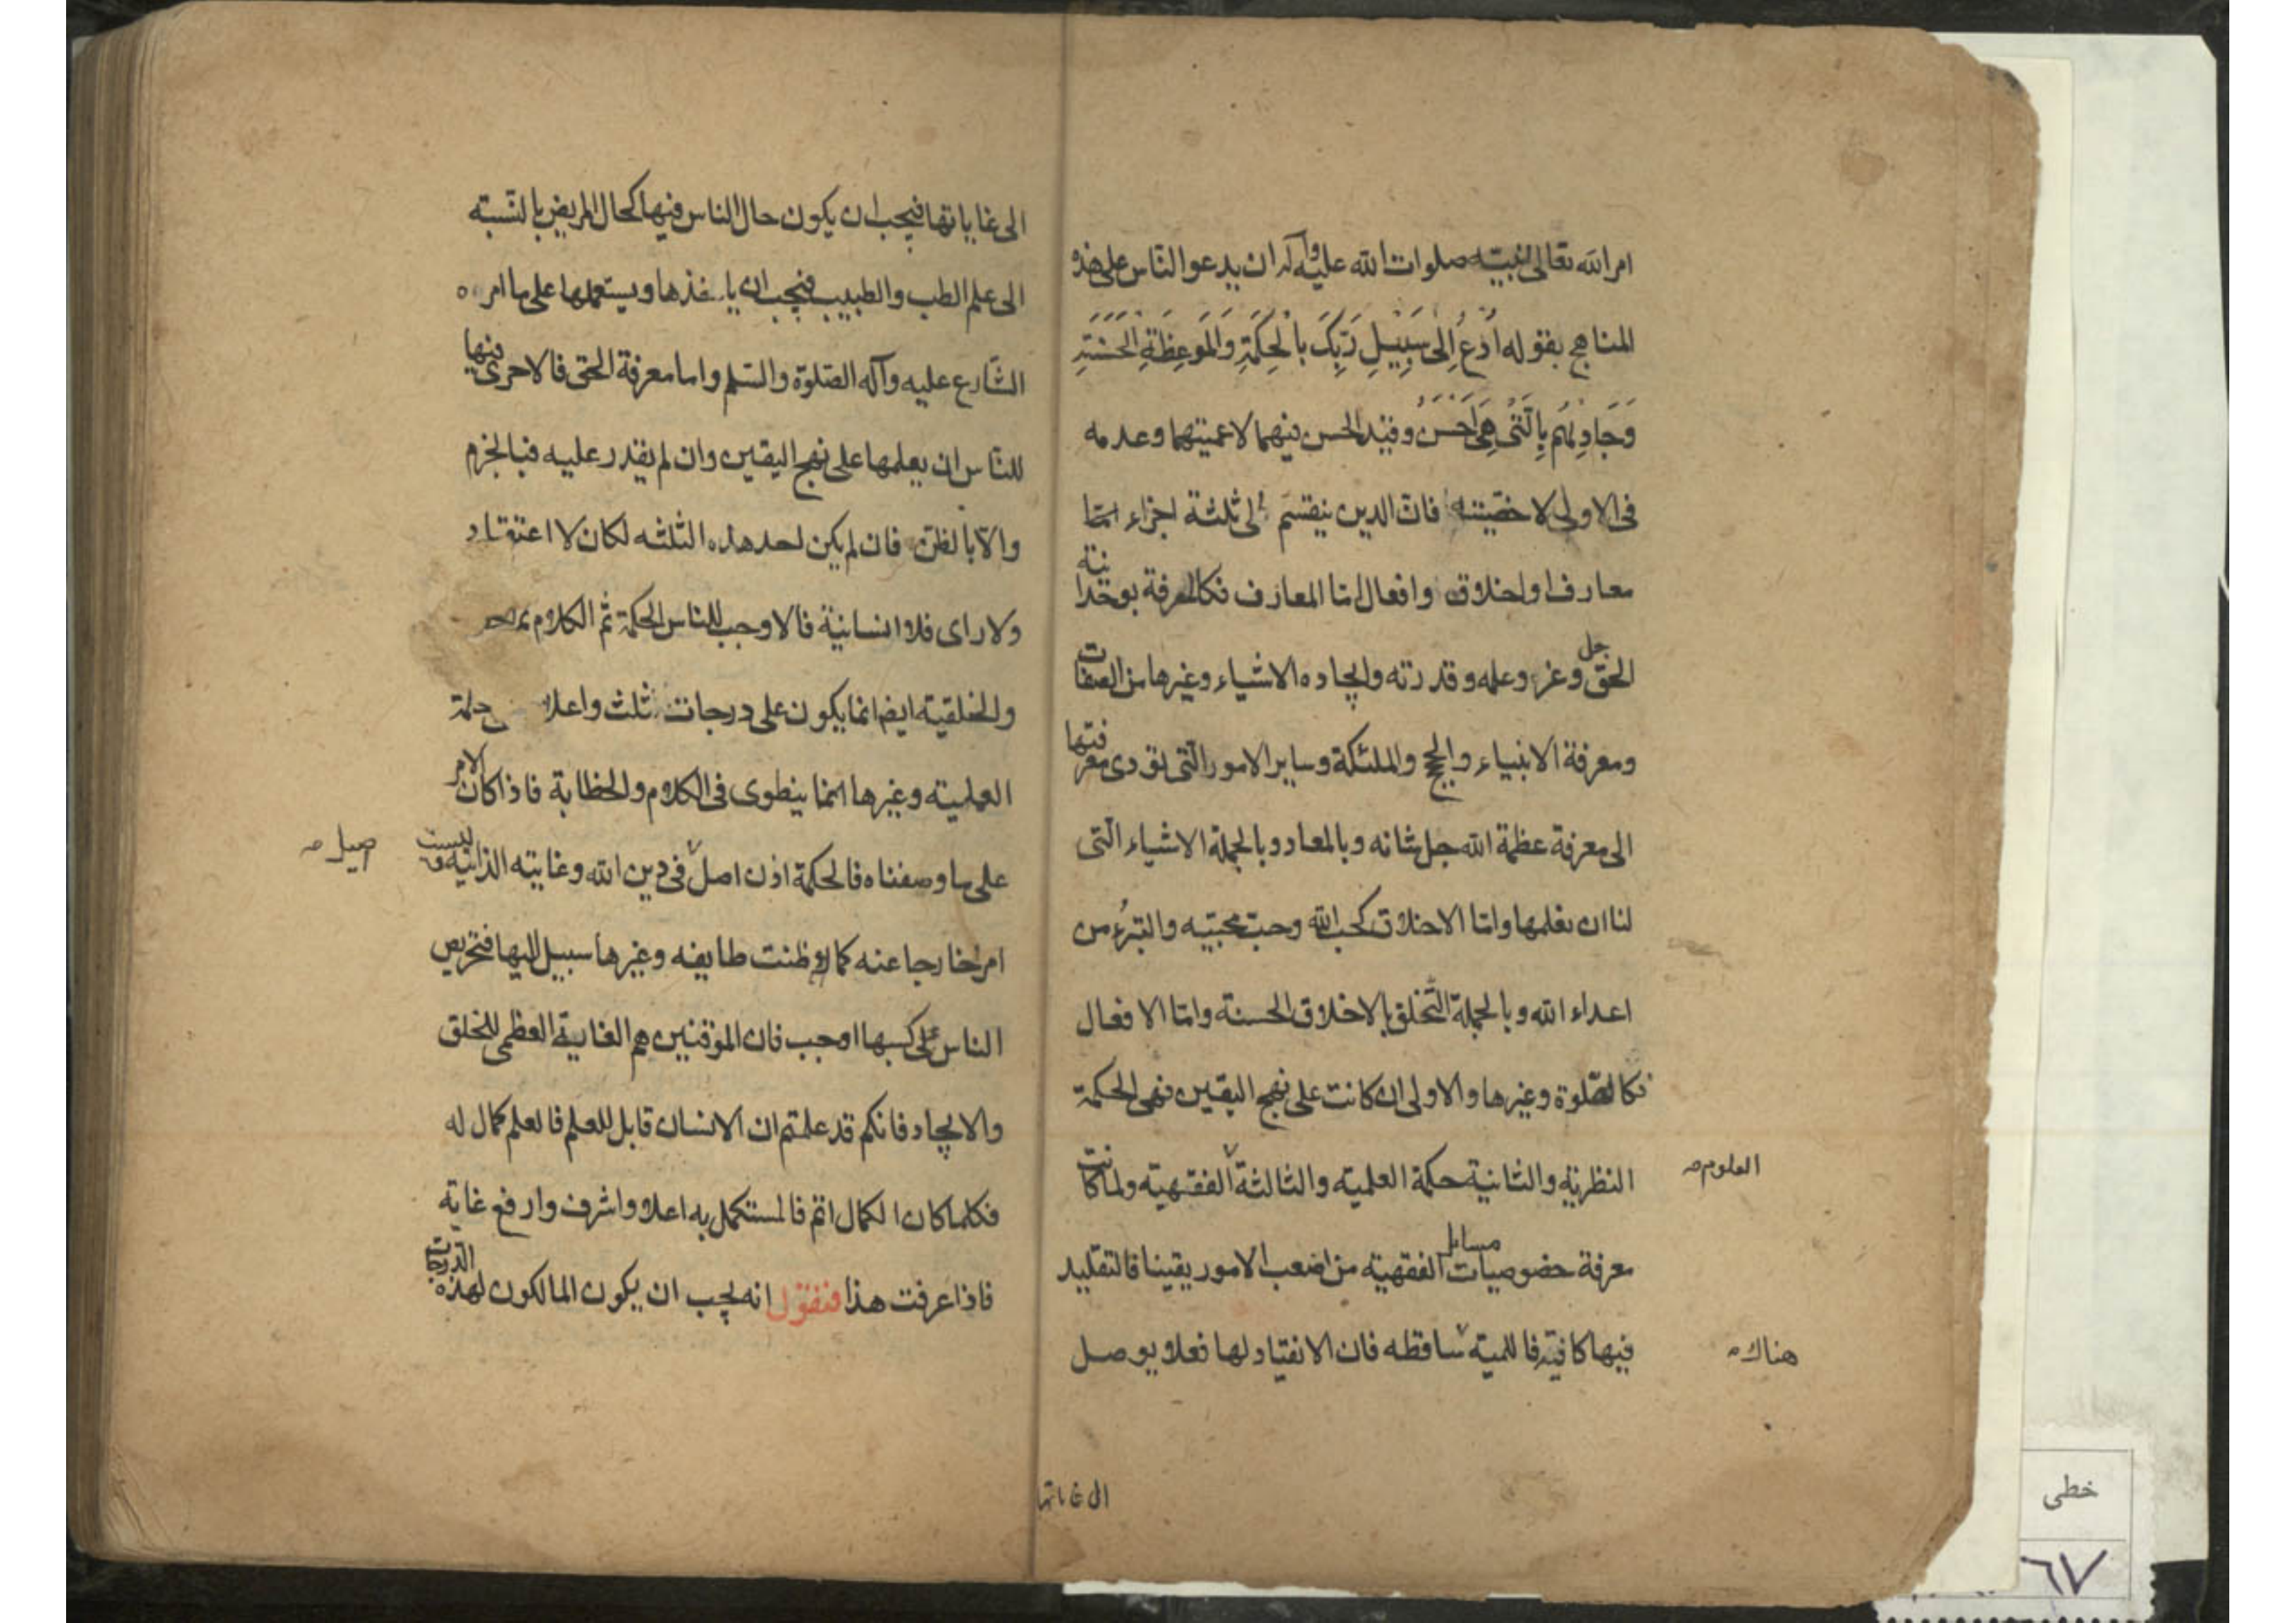 امر الله تعالى لنبيته صلوات الله عليه وآله ان يدعو الناس على هذه
المناهج بقوله اُدْعُ اِلىٰ سَبِيْلِ رَبِّكَ بِالْحِكْمَةِ وَالْمَوعِظَةِ الْحَسَنَةِ
وَجَادِلْهُمْ بِالَّتْى هِىَ اَحْسَنُ وقيّد الحسن فيهما لاعميتهما وعدمه
فى الاولى لاخصّيته فان الدين ينقسم الى ثلثة اجزاء امّا
معارف او اخلاق وافعال امّا المعارف فكالمعرفة بوحدانيته
الحق جل وعز وعلمه وقدرته وايجاده الاشياء وغيرها من الصفات
ومعرفة الانبياء والحجج والملئكة وساير الامور التى تؤدى معرفتها
الى معرفة عظمة الله جل شانه وبالمعاد وبالجملة الاشياء التى
لنا ان نعلمها وامّا الاخلاق كحب الله وحبّ محبّيه والتبرُء من
اعداء الله وبالجملة التّخلق بالاخلاق الحسنة وامّا الافعال
فكالصّلوة وغيرها والاولى ان كانت على نهج اليقين فهى الحكمة
النظريّة والثانية حكمة العلميّه والثالثة الفقهيّه ولما كانت
العلوم صح
معرفة خصوصيات مسايل الفقهيّه من اصعب الامور يقينا فالتقليد
فيها كافية فاللمية ساقطه فان الانقياد لها فعلا يوصل
هناك صح
الى غاياتها
الى غاياتها فيجب ان يكون حال الناس فيها كحال المريض بالنسبته
الى علم الطب والطبيب فيجب ان ياخذها ويستعملها على ما امره
الشّارع عليه وآله الصّلوة والسّلم واما معرفة الحق فالاحرى فيها
للنّاس ان يعلمها على نهج اليقين وان لم يقدر عليه فبالجزم
والّا بالظنّ فان لم يكن احد هذه الثلثه لكان لا اعتقاد
ولا راى فلا انسانيّة فالاوجب للناس الحكمة ثم الكلام
والخلقيّه ايضا انما يكون على درجات ثلث واعلا حكمة
العمليّه وغيرها انما ينطوى فى الكلام والخطابة فاذا كان الامر
على ما وصفناه فالحكمة اذن اصل فى دين الله وغايته الذاتيه وليست
اصيل صح
امرا خارجا عنه كما ظنت طايفه وغيرها سبيل اليها فتحريص
الناس على كسبها اوجب فان الموقنين هم الغاية العظمى للخلق
والايجاد فانكم قد علمتم ان الانسان قابل للعلم فالعلم كمال له
فكلما كان الكمال اتم فالمستكمل به اعلا واشرف وارفع غاية
فاذا عرفت هذا فنقول انه يجب ان يكون المالكون لهذه الدّرجات
خطى
٦٧